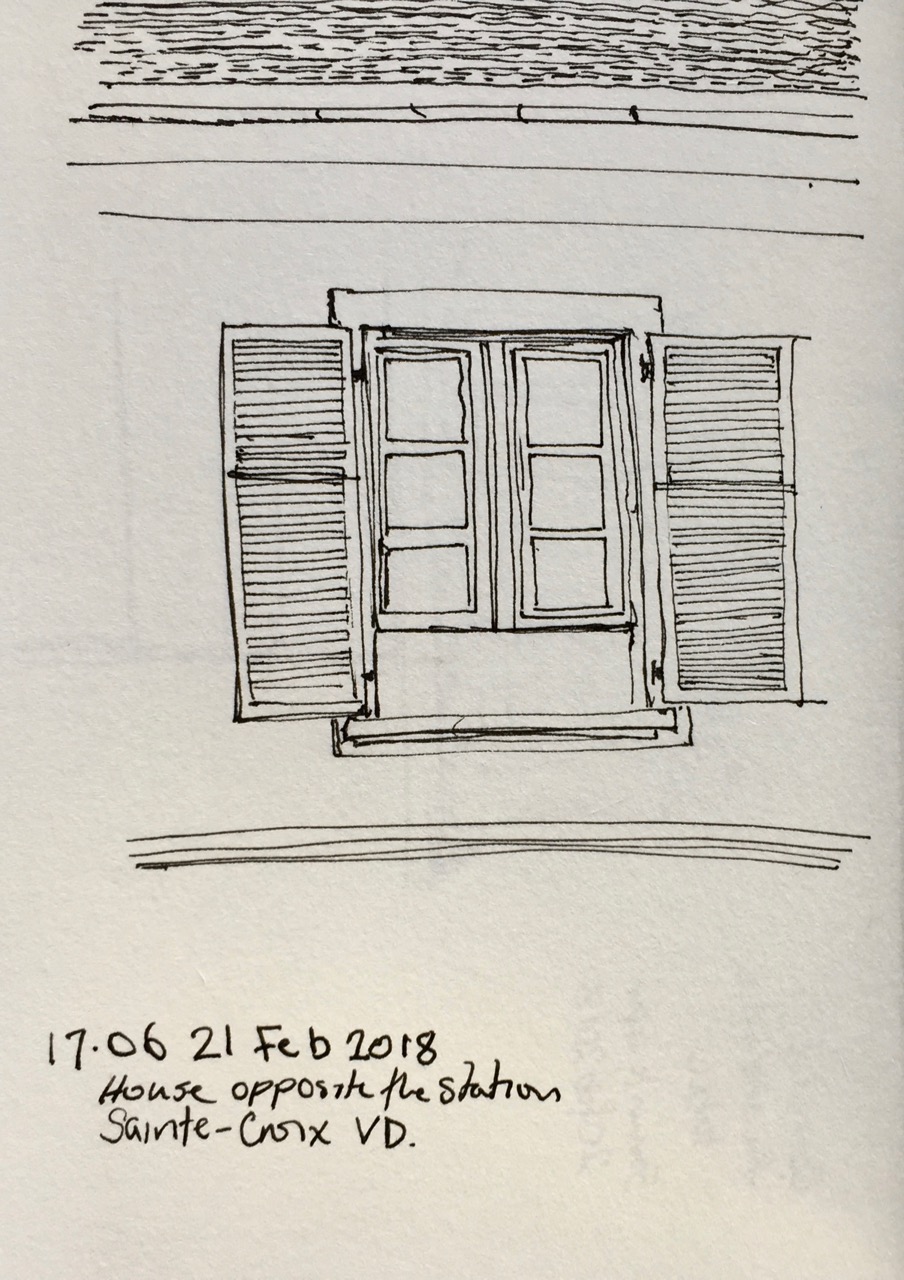 17.06 21 Feb 2018
House opposite the station
Sainte-Croix VD.